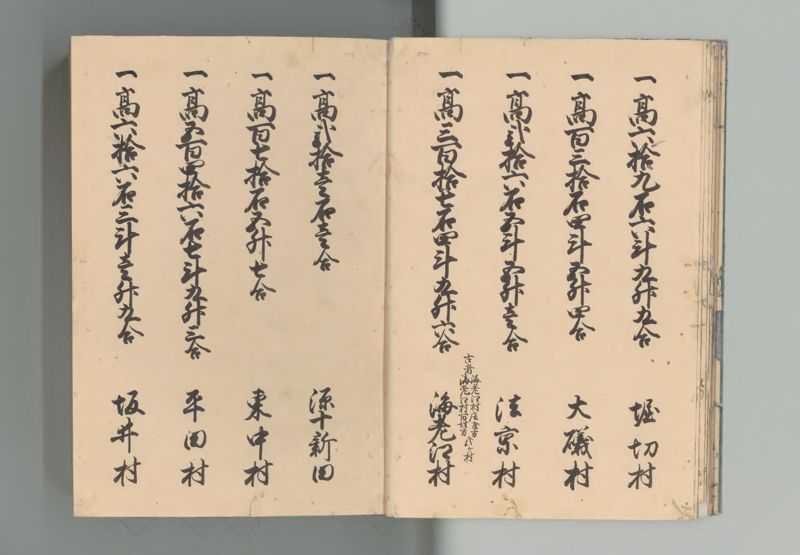 一高六拾九石六斗九升九合 堀切村
一高百三拾石四斗五升四合 大磯村
一高弐拾六石五斗五升壱合 法京村
古者海老江村法京方
海老江村百姓方
一高三百拾七石四斗九升六合 海老江村
一高弐拾壱石壱合 源十新田
一高百七拾石五升七合 東中村
一高五百四拾六石七斗九升三合 平田村
一高六拾六石三斗壱升九合 坂井村